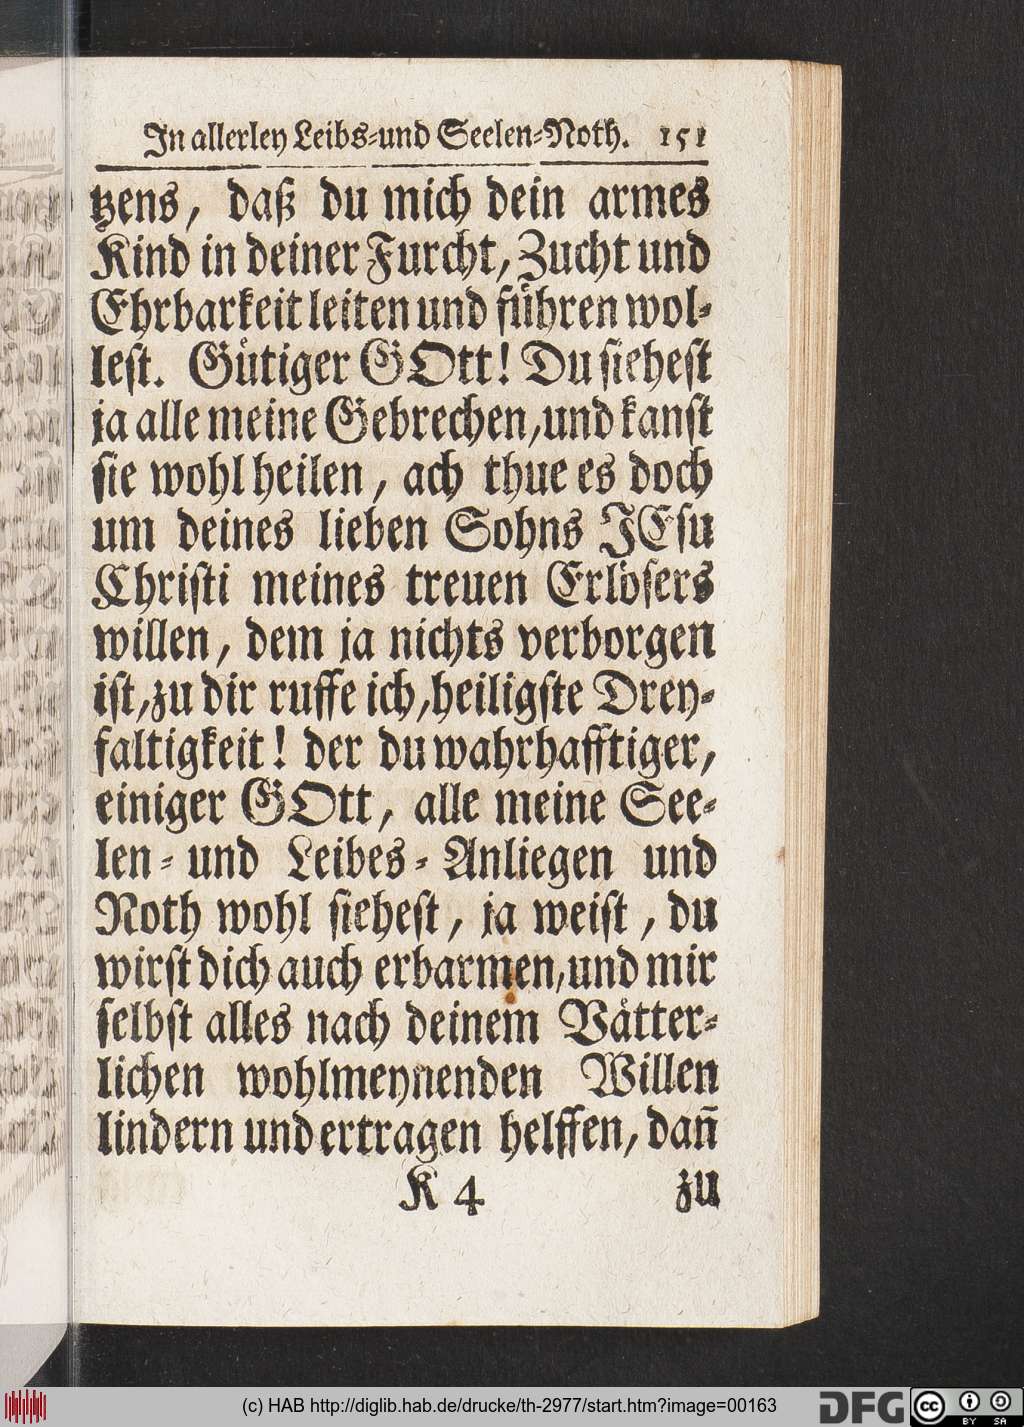 In allerley Leibs-und Seelen-Noth. 151
tzens, daß du mich dein armes
Kind in deiner Furcht, Zucht und
Ehrbarkeit leiten und führen wol-
lest. Gütiger GOtt! Du siehest
ja alle meine Gebrechen, und kanst
sie wohl heilen, ach thue es doch
um deines lieben Sohns JEsu
Christi meines treuen Erlösers
willen, dem ja nichts verborgen
ist, zu dir ruffe ich, heiligste Drey-
faltigkeit! der du wahrhafftiger,
einiger GOtt, alle meine See-
len- und Leibes-Anliegen und
Noth wohl siehest, ja weist, du
wirst dich auch erbarmen, und mir
selbst alles nach deinem Vätter-
lichen wohlmeynenden Willen
lindern und ertragen helffen, dañ
K 4 zu
(c) HAB http://diglib.hab.de/drucke/th-2977/start.htm?image=00163
DFG cc BY SA